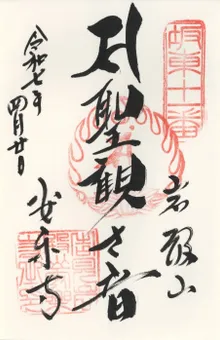 坂東十一番
岩殿山
聖観世音
安楽寺
令和七年四月廿日